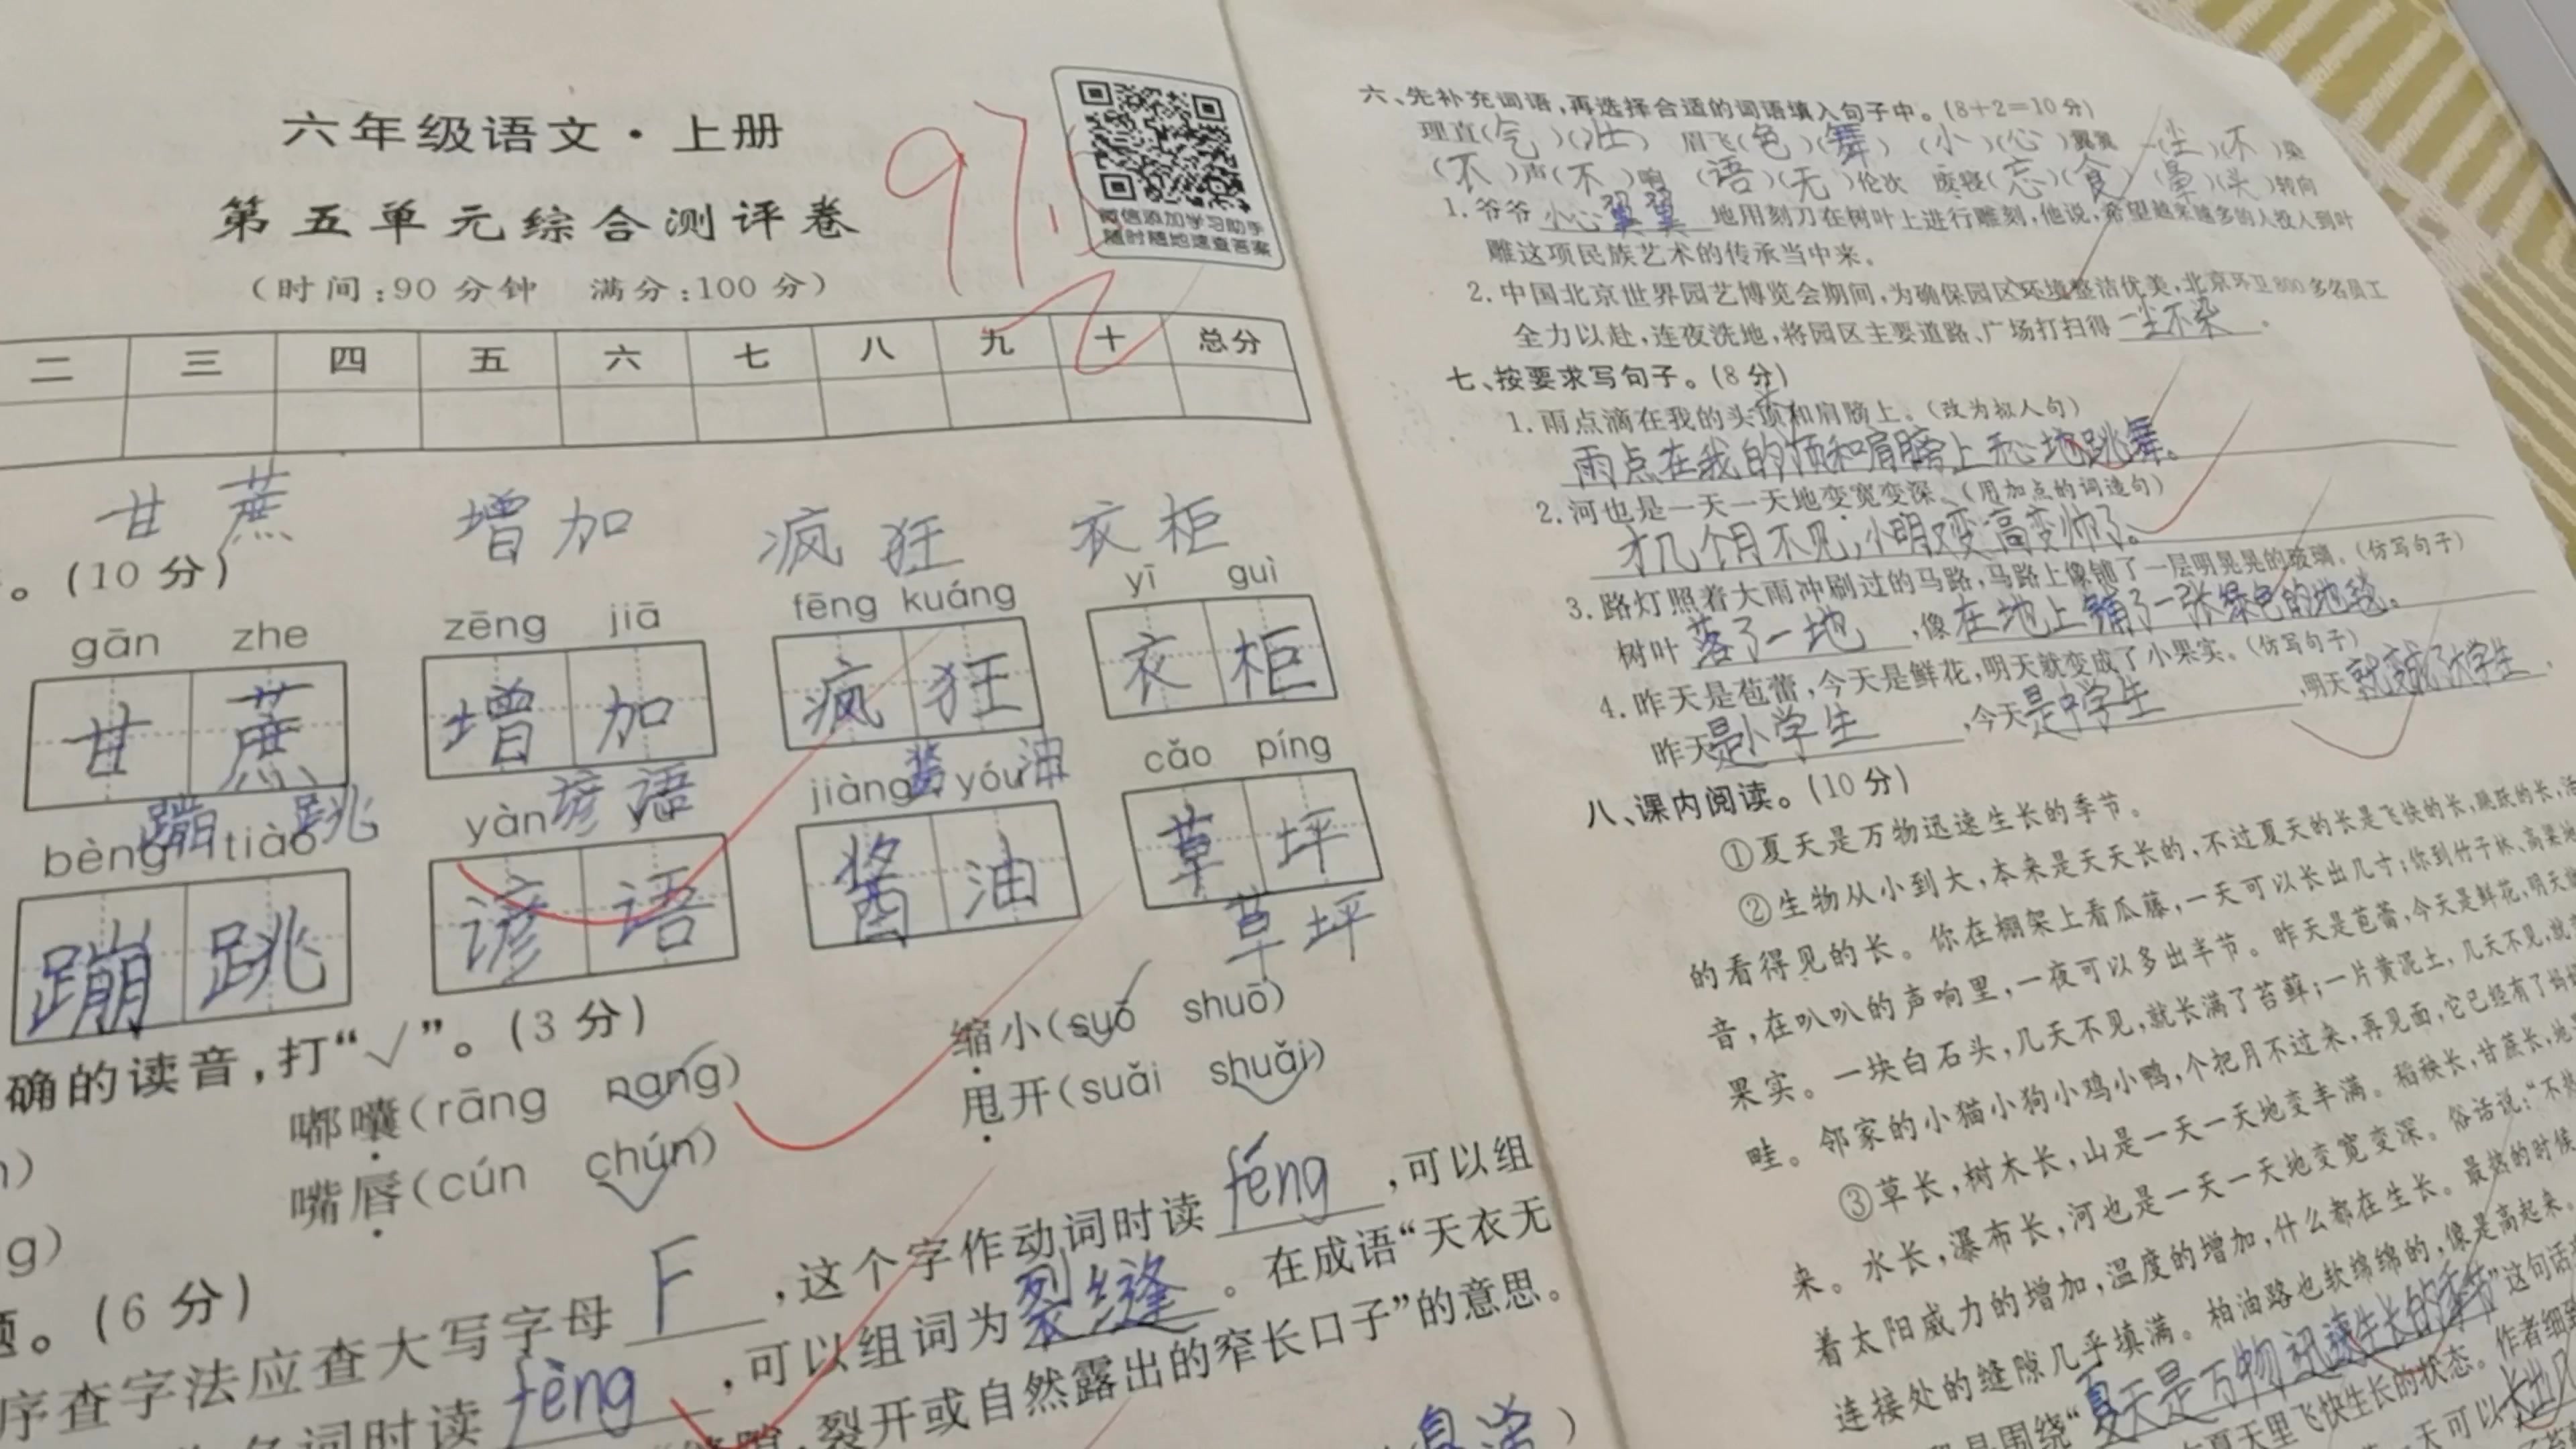 六年级语文·上册
第五单元综合测评卷
(时间:90分钟 满分:100分)
97.
微信添加学习助手
随时随地速查答案
二 三 四 五 六 七 八 九 十 总分
甘蔗 增加 疯狂 衣柜
。(10分)
gān zhe zēng jiā fēng kuáng yī guì
甘蔗 增加 疯狂 衣柜
蹦跳 谚语 酱油
bèng tiào yàn jiàng yóu cǎo píng
蹦跳 谚语 酱油 草坪
草坪
确的读音,打“√”。(3分)
缩小(suō shuō)
嘟囔(rāng nang)
甩开(suǎi shuǎi)
嘴唇(cún chún)
g)
题。(6分)
序查字法应查大写字母 F ,这个字作动词时读 féng ,可以组
名词时读 fèng ,可以组词为 裂缝 。在成语“天衣无
,裂开或自然露出的窄长口子”的意思。
六、先补充词语,再选择合适的词语填入句子中。(8+2=10分)
理直(气)(壮) 眉飞(色)(舞) (小)(心)翼翼 一(尘)(不)染
(不)声(不)响 (语)(无)伦次 废寝(忘)(食) (晕)(头)转向
1.爷爷 小心翼翼 地用刻刀在树叶上进行雕刻,他说,希望越来越多的人投入到叶
雕这项民族艺术的传承当中来。
2.中国北京世界园艺博览会期间,为确保园区环境整洁优美,北京环卫800多名员工
全力以赴,连夜洗地,将园区主要道路、广场打扫得 一尘不染 。
七、按要求写句子。(8分)
1.雨点滴在我的头顶和肩膀上。(改为拟人句)
雨点在我的头顶和肩膀上开心地跳舞。
2.河也是一天一天地变宽变深。(用加点的词造句)
才几个月不见,小明又变高变帅了。
3.路灯照着大雨冲刷过的马路,马路上像铺了一层明晃晃的玻璃。(仿写句子)
树叶 落了一地 ,像 在地上铺了一张绿色的地毯。
4.昨天是苞蕾,今天是鲜花,明天就变成了小果实。(仿写句子)
昨天 是小学生 ,今天 是中学生 ,明天 就变成了大学生 。
八、课内阅读。(10分)
①夏天是万物迅速生长的季节。
②生物从小到大,本来是天天长的,不过夏天的长是飞快的长,跳跃的长,活
的看得见的长。你在棚架上看瓜藤,一天可以长出几寸;你到竹子林、高粱地
音,在叭叭的声响里,一夜可以多出半节。昨天是苞蕾,今天是鲜花,明天就
果实。一块白石头,几天不见,就长满了苔藓;一片黄泥土,几天不见,就
畦。邻家的小猫小狗小鸡小鸭,个把月不过来,再见面,它已经有了
③草长,树木长,山是一天一天地变丰满。稻秧长,甘蔗长,地
来。水长,瀑布长,河也是一天一天地变宽变深。俗话说:“不
着太阳威力的增加,温度的增加,什么都在生长。最热的时候
连接处的缝隙几乎填满。柏油路也软绵绵的,像是高起来。
是围绕“夏天是万物迅速生长的季节”这句话
夏天里飞快生长的状态。作者细
天可以长出几